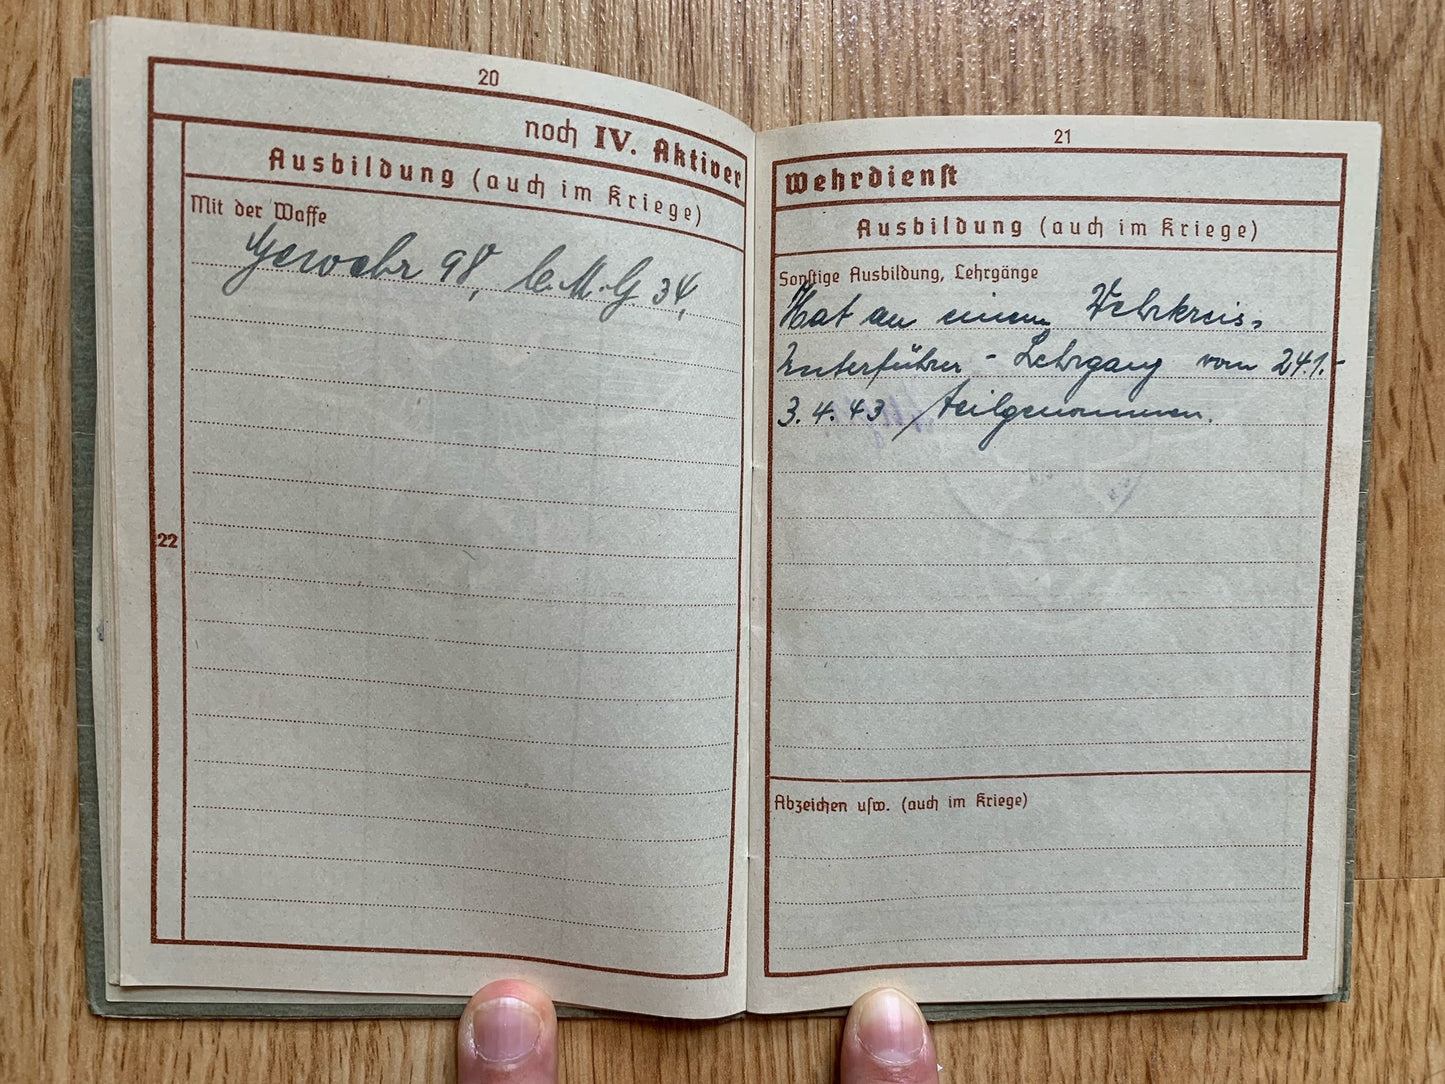 20
noch IV. Aktiver
Ausbildung (auch im Kriege)
Mit der Waffe
Gewehr 98, l.M.G. 34,
22
21
Wehrdienst
Ausbildung (auch im Kriege)
Sonstige Ausbildung, Lehrgänge
Hat an einem Wehrkreis-
Unterführer - Lehrgang vom 24.1.-
3.4.43 teilgenommen.
Abzeichen usw. (auch im Kriege)